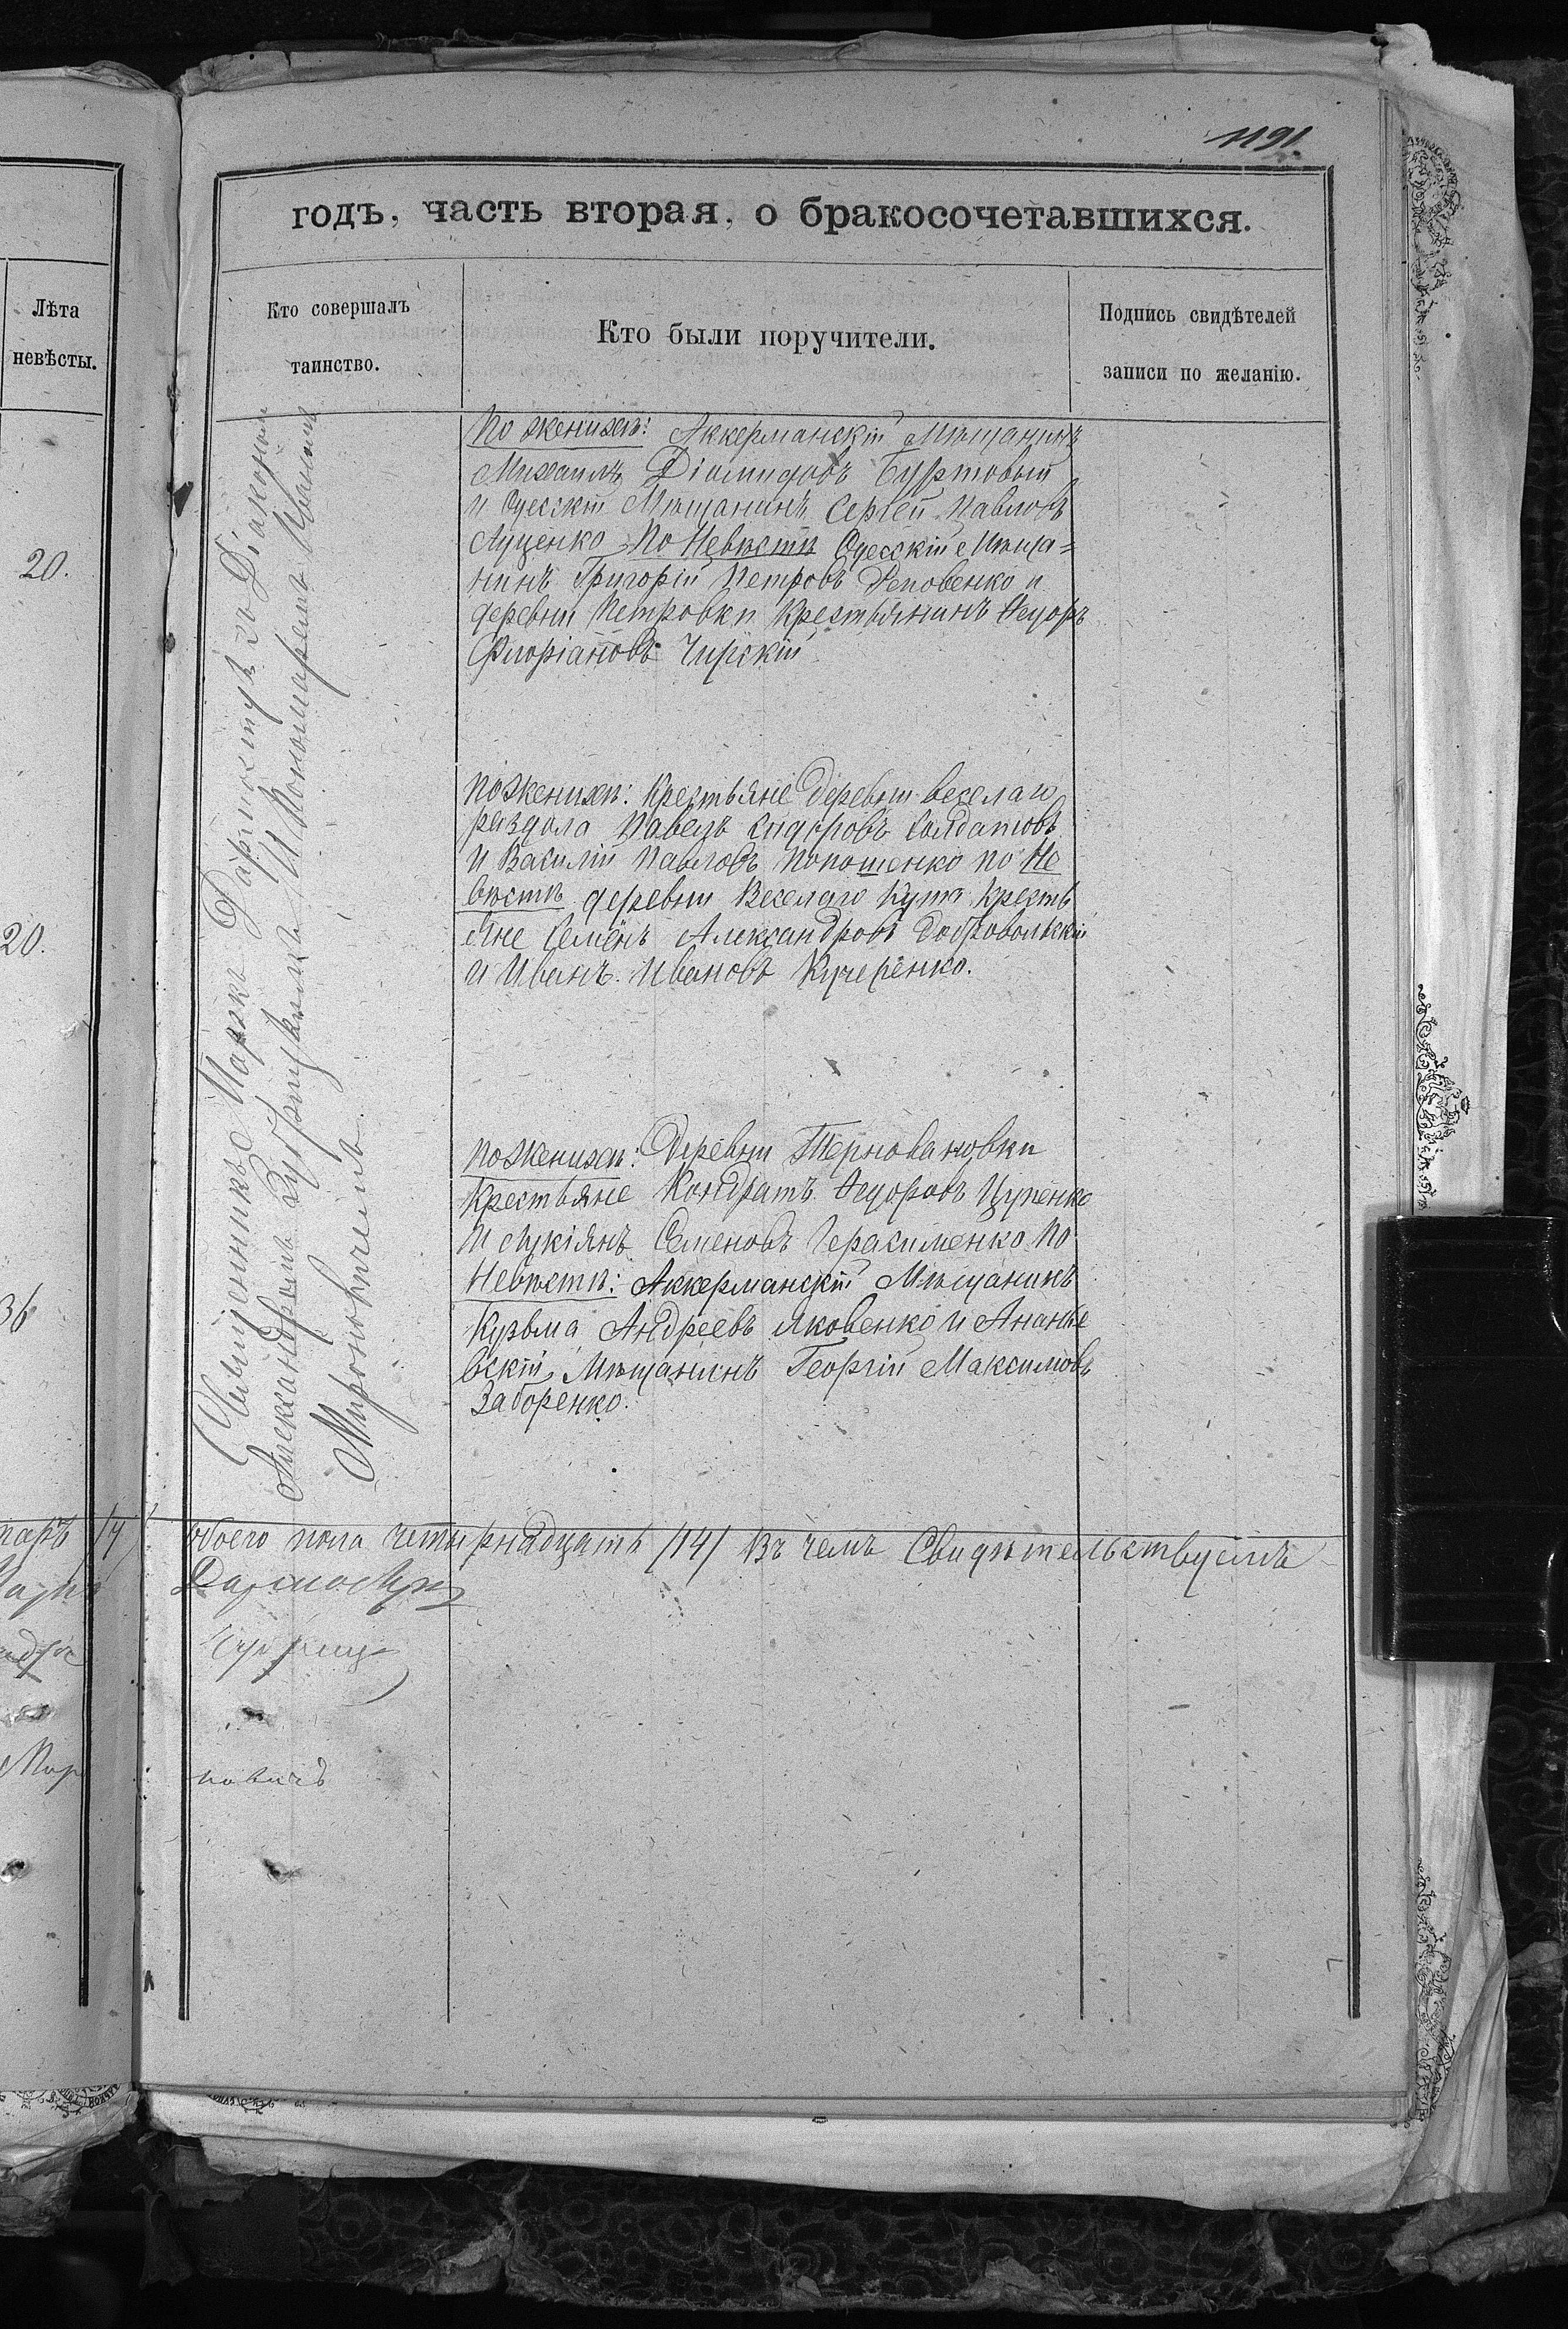 1191
годъ, часть вторая, о бракосочетавшихся.
Лѣта
невѣсты.
Кто совершалъ
таинство.
Кто были поручители.
Подпись свидѣтелей
записи по желанію.
20.
20.
36
Священникъ Маркъ со Діакономъ
Александромъ И Пономаремъ Иваномъ
Мироновичемъ.
По женихѣ: Аккерманскій Мѣщанинъ
Михаилъ Діомидовъ Буртовый
и Одесскій Мѣщанинъ Сергей Павловъ
Луценко По Невѣстѣ Одесскій Мѣща=
нинъ Григорій Петровъ Деповенко и
деревни Петровки Крестьянинъ Ѳедоръ
Флоріановъ Чирскій
По Женихѣ: Крестьяне деревни Веселаго
раздола Павелъ Сидоровъ Солдатовъ
И Василій Павловъ Попошенко по Не
вѣстѣ деревни Веселаго Кута Кресть
яне Семенъ Александровъ Добровольскій
и Иванъ Ивановъ Кучеренко.
По Женихѣ: Деревни Терновановки
Крестьяне Кондратъ Ѳедоровъ Цупенко
И Лукіянъ Семеновъ Герасименко По
Невѣстѣ: Аккерманскій Мѣщанинъ
Кузьма Андреевъ Яковенко и Ананье
вскій Мѣщанинъ Георгій Максимовъ
Заборенко.
обоего пола четырнадцать /14/ Въ чемъ Свидѣтельствуемъ
новичъ